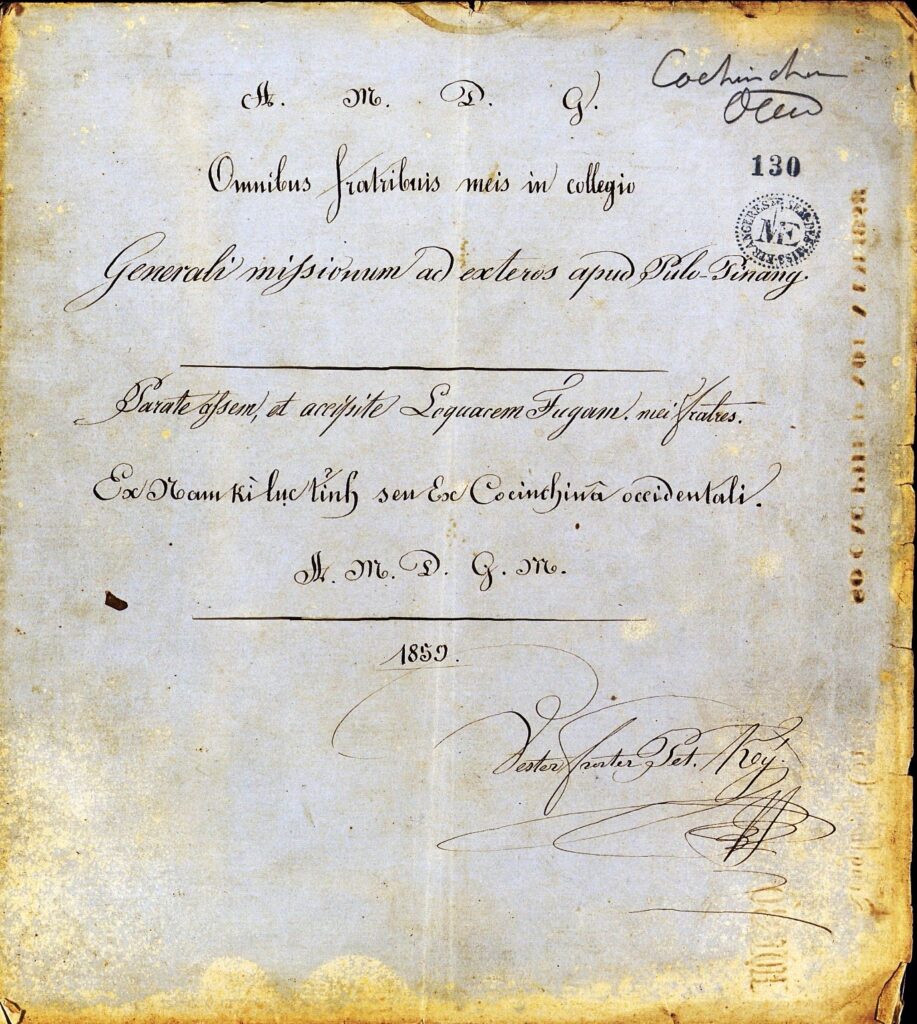 A. M. D. G.
Cochinchin
Occid
130
ME
Omnibus fratribuis meis in collegio
Generali missionum ad exteros apud Pulo-Pinang.
Parate assem, et accipite Loquacem Fugam. mei fratres.
Ex Nam Kì lục tỉnh seu Ex Cocinchinâ occidentali.
A. M. D. G. M.
1859.
Vester frater Pet. Ký.